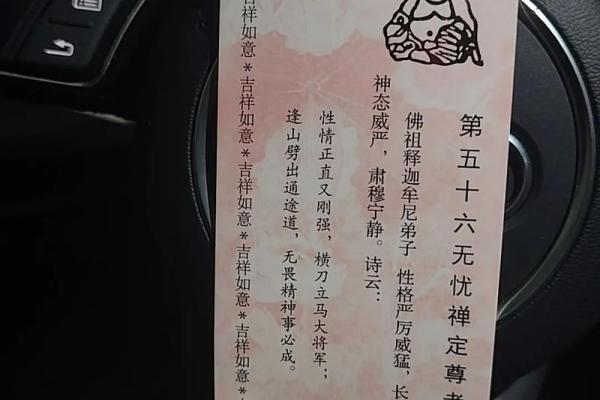 第五十六无忧禅定尊者
佛祖释迦牟尼弟子 性格严厉威猛，长
神态威严，肃穆宁静。诗云：
性情正直又刚强，横刀立马大将军；
逢山劈出通途道，无畏精神事必成。
吉祥如意*吉祥如意*吉祥如意*吉祥如意*吉祥如意*